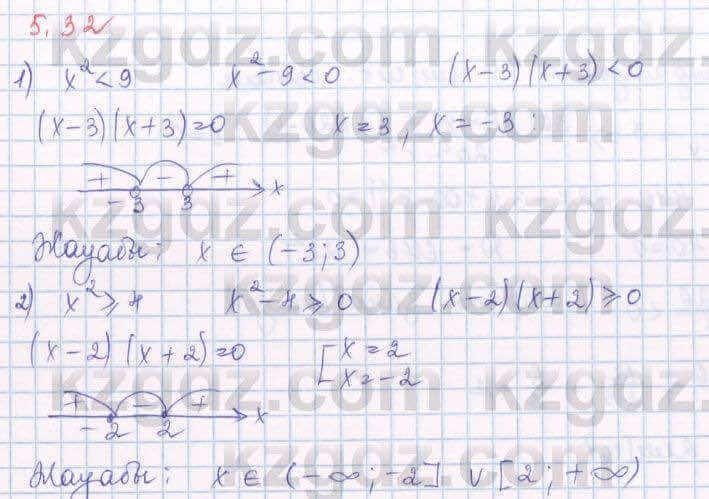 5.32
1) x² < 9 x² - 9 < 0 (x-3)(x+3) < 0
(x-3)(x+3) = 0 x = 3, x = -3
+ - + x
-3 3
Жауабы: x ∈ (-3; 3)
2) x² ⩾ 4 x² - 4 ⩾ 0 (x-2)(x+2) ⩾ 0
(x-2)(x+2) = 0 [x = 2
x = -2
+ - + x
-2 2
Жауабы: x ∈ (-∞; -2] ∪ [2; +∞)
kzgdz.com
kzgdz.com
kzgdz.com
kzgdz.com
kzgdz.com